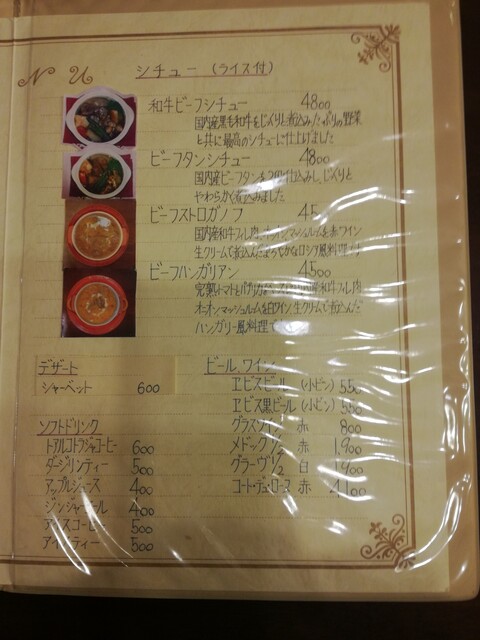 N U
シチュー (ライス付)
和牛ビーフシチュー 4800
国内産黒毛和牛をじっくりと煮込みたっぷりの野菜
と共に最高のシチューに仕上げました
ビーフタンシチュー 4800
国内産ビーフタンを 仕込みし、じっくりと
やわらかく煮込みました
ビーフストロガノフ 45
国内産和牛フィレ肉、オニオン、マッシュルームを赤ワイン
生クリームで煮込んだまろやかなロシア風料理です
ビーフハンガリアン 4500
完熟トマトとパプリカ 和牛フィレ肉
オニオンマッシュルームを白ワイン、生クリームで煮込んだ
ハンガリー風料理で
デザート
シャーベット 600
ソフトドリンク
トアルコトラジャコーヒー 600
ダージリンティー 500
アップルジュース 400
ジンジャエール 400
アイスコーヒー 500
アイスティー 500
ビール、ワイン
ヱビスビール (小ビン) 550
ヱビス黒ビール (小ビン) 550
グラスワイン 赤 800
メドック 1/2 赤 1,900
グラーヴ 1/2 白 1,900
コート・デュ・ローヌ 赤 4,100